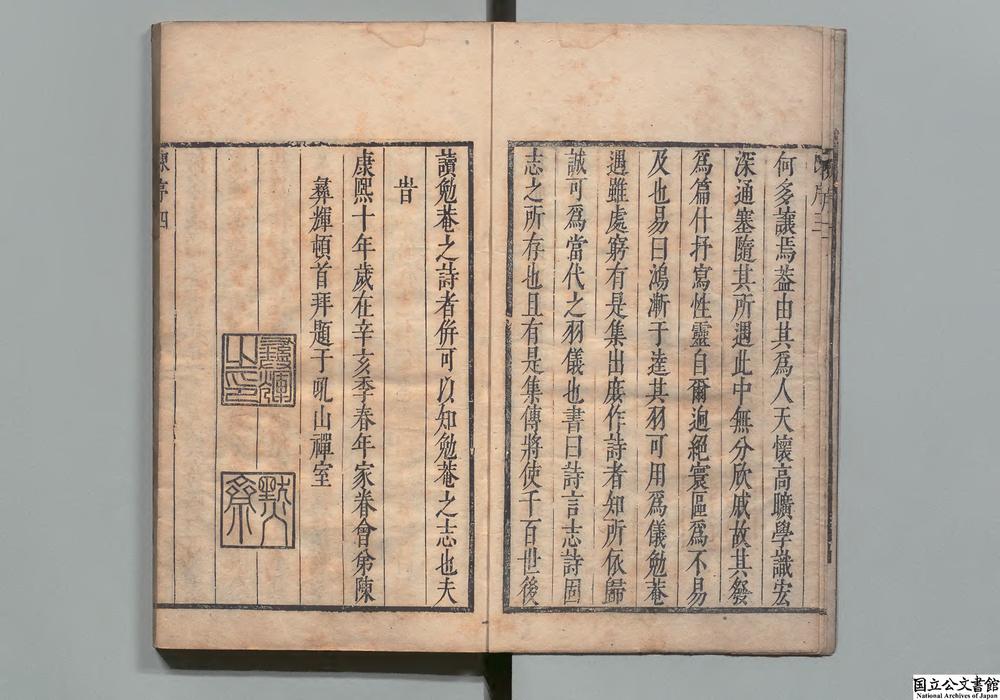 何多讓焉葢由其爲人天懷高曠學識宏
深通塞隨其所遇此中無分欣戚故其發
爲篇什抒寫性靈自爾逈絕寰區爲不易
及也易曰鴻漸于逵其羽可用爲儀勉菴
遇雖處窮有是集出庻作詩者知所依歸
誠可爲當代之羽儀也書曰詩言志詩固
志之所存也且有是集傳將使千百世後
讀勉菴之詩者併可以知勉菴之志也夫
旹
康熙十年歲在辛亥季春年家眷會弟陳
彝輝頓首拜題于吼山禪室
彝輝之印
陳序四
国立公文書館
National Archives of Japan